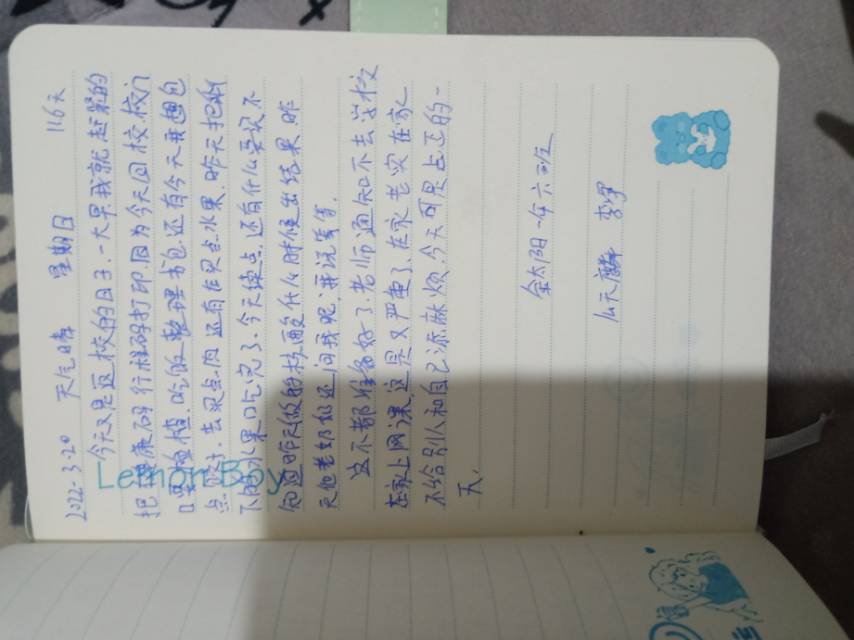 2022.3.20 天气晴 星期日 116天
今天又是返校的日子.一大早我就赶紧的
把健康码 行程码打印.因为今天回校.校门
口要检查.吃饭 整理书包.还有今天我想包
点饺子.去买点肉 还有在买点水果.昨天把剩
下的水果口吃完了.今天读点.还有什么要说不
知道昨天做的核酸什么时候出结果 昨
天他老奶奶还问我呢.我说等等.
这不都准备好了.老师通知不去学校
在家上网课.这是又严重了.在家老实在家
不给别人和自己添麻烦.今天可是占正的一
天.
金太阳一年六班
么天麟 李军
Lemon Boy